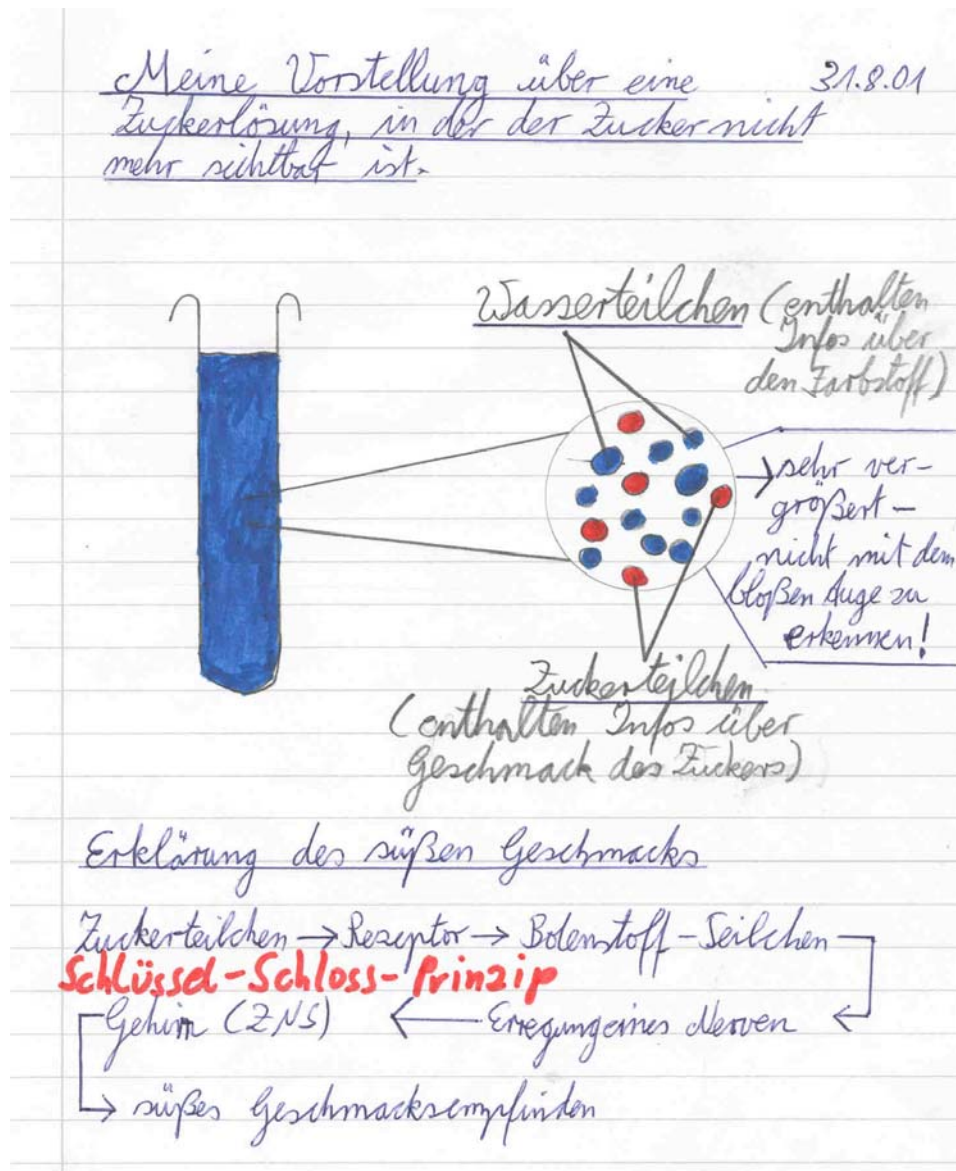 Meine Vorstellung über eine 31.8.01
Zuckerlösung, in der der Zucker nicht
mehr sichtbar ist.
Wasserteilchen (enthalten
Infos über
den Farbstoff)
→ sehr ver-
größert –
nicht mit dem
bloßen Auge zu
erkennen!
Zuckerteilchen
(enthalten Infos über
Geschmack des Zuckers)
Erklärung des süßen Geschmacks
Zuckerteilchen → Rezeptor → Botenstoff-Teilchen
Schlüssel-Schloss-Prinzip
Gehirn (ZNS) ← Erregung eines Nerven ←
→ süßes Geschmacksempfinden